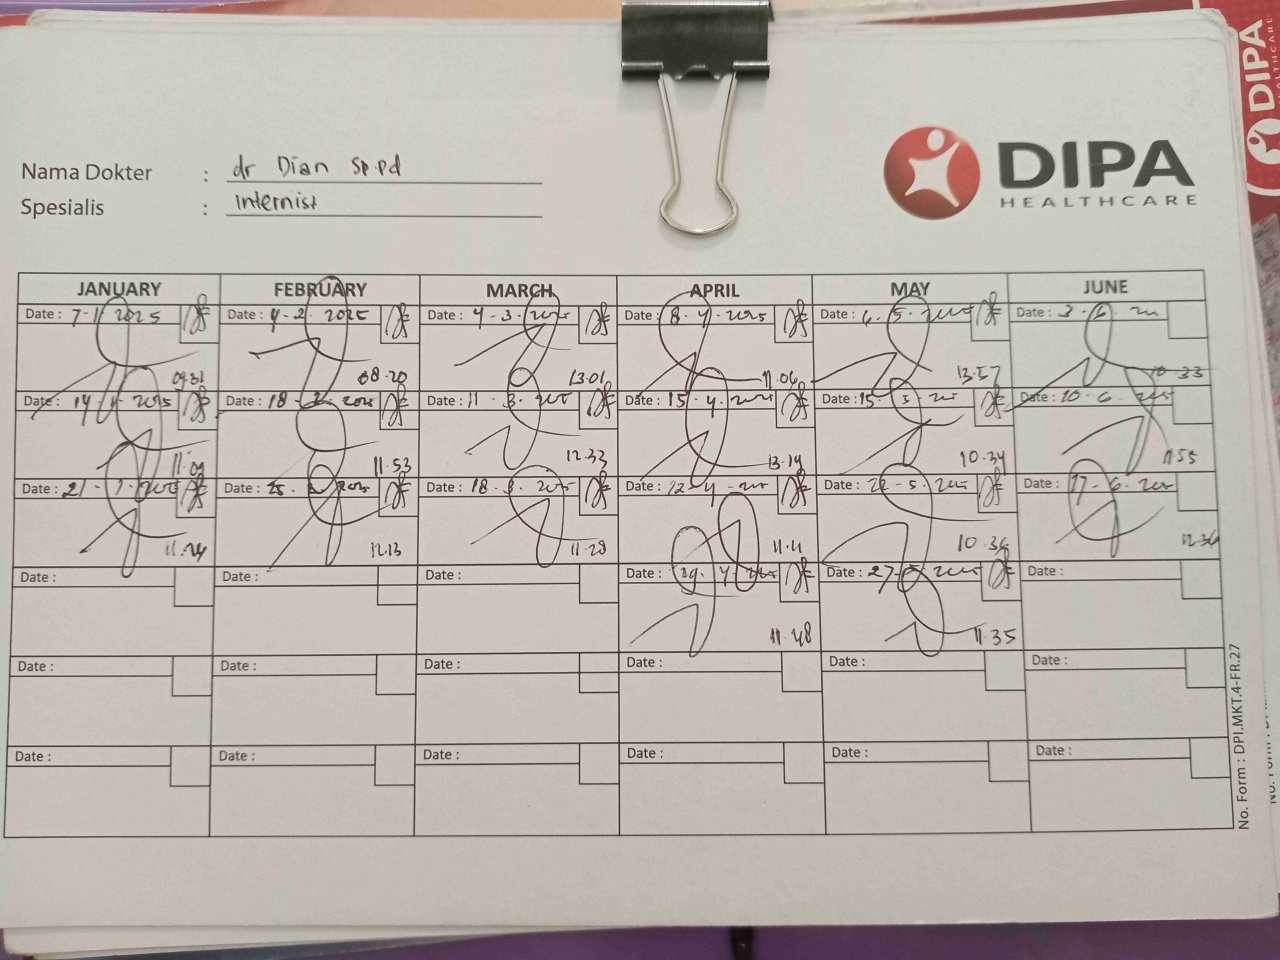 Nama Dokter : dr Dian Sp.Pd
Spesialis : Internist
DIPA
HEALTHCARE
DIPA
JANUARY FEBRUARY MARCH APRIL MAY JUNE
Date : 7-1-2025 Date : 4-2-2025 Date : 4-3-2025 Date : 8-4-2025 Date : 6-5-2025 Date : 3-6-
09.31 08.20 13.01 11.06 13.57 10.33
Date : 14-1-2025 Date : 18-2-2025 Date : 11-3-2025 Date : 15-4-2025 Date : 15-5- Date : 10-6-2025
11.09 11.53 12.33 13.19 10.34 11.55
Date : 21-1-2025 Date : 25-2-2025 Date : 18-3-2025 Date : Date : 22-5-2025 Date : 17-6-2025
11.24 12.13 11.29 11.11 10.36 12.36
Date : Date : Date : Date : 29-4-2025 Date : 27-5-2025 Date :
11.48 11.35
Date : Date : Date : Date : Date : Date :
Date : Date : Date : Date : Date : Date :
No. Form : DPI.MKT.4-FR.27